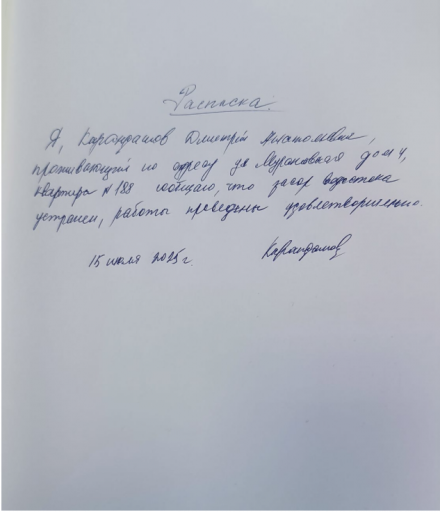 Расписка.
Я, Карандашов Дмитрий Анатольевич,
проживающий по адресу ул Мурановская дом 4,
квартира №188 сообщаю, что засор водостока
устранен, работы проведены удовлетворительно.
15 июля 2025г. Карандашов